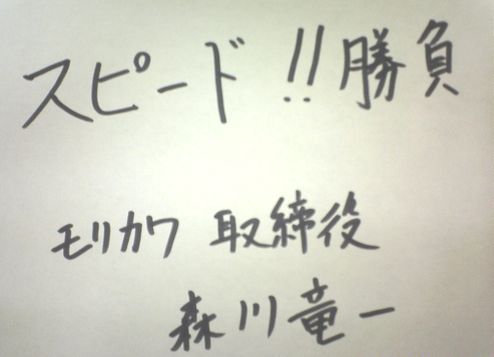 スピード!!勝負
モリカワ 取締役
森川竜一